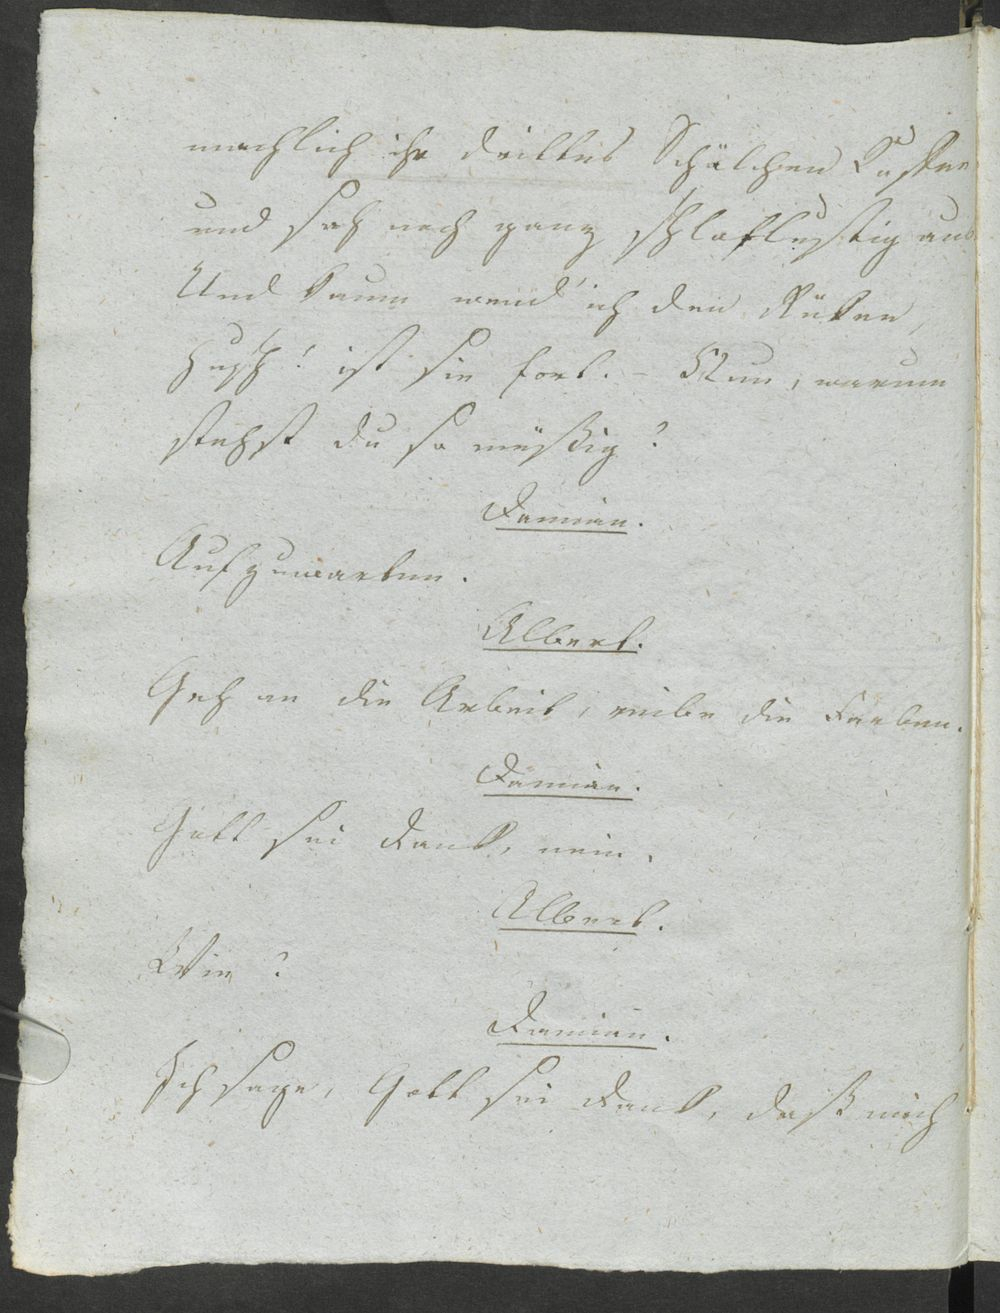 mächlich ihr drittes Schälchen Kaffee
und sah noch ganz schlaflustig aus
Und kaum wend' ich den Rücken,
husch! ist sie fort. – Nun, warum
stehst du so müßig?
Damian.
Aufzuwarten.
Albert.
Geh an die Arbeit, reibe die Farben.
Damian.
Gott sei Dank, nein.
Albert.
Wie?
Damian.
Ich sage, Gott sei Dank, daß mich